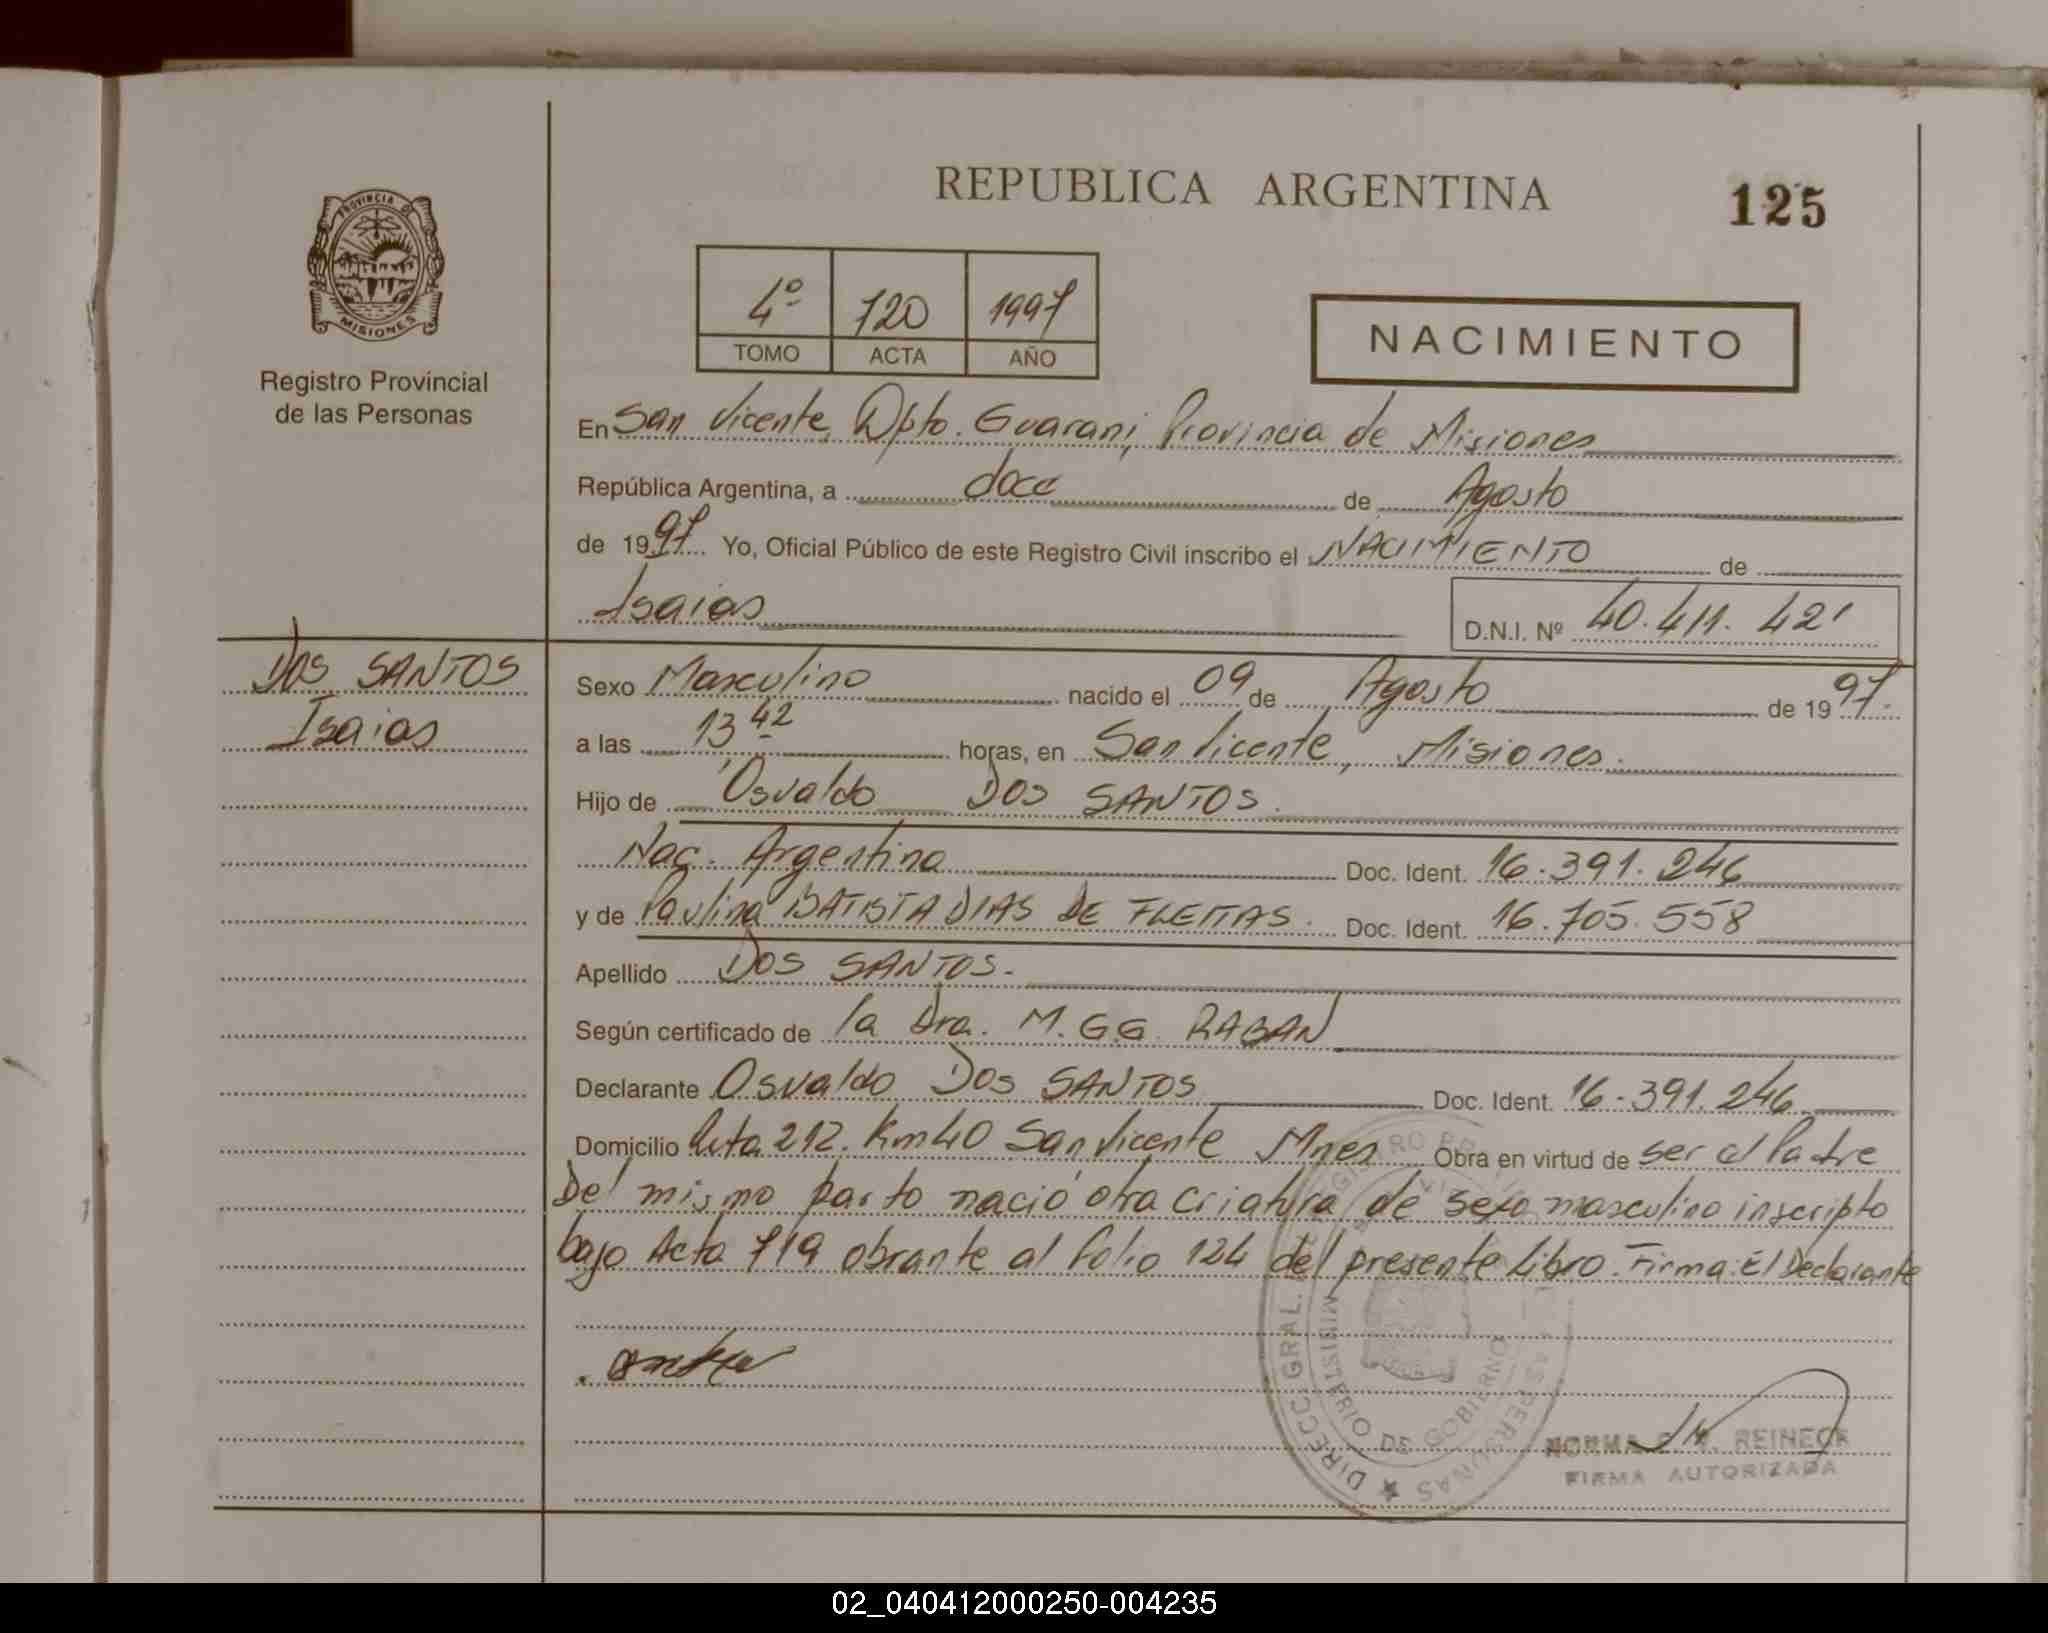 REPUBLICA ARGENTINA
125
PROVINCIA DE
MISIONES
Registro Provincial
de las Personas
4º 720 1997
TOMO ACTA AÑO
NACIMIENTO
En San Vicente, Dpto. Guarani, Provincia de Misiones
República Argentina, a doce de Agosto
de 1997 Yo, Oficial Público de este Registro Civil inscribo el NACIMIENTO de
Isaias
D.N.I. Nº 40.411.421
DOS SANTOS
Isaias
Sexo Masculino nacido el 09 de Agosto de 1997.
a las 13 42 horas, en San Vicente, Misiones.
Hijo de Osvaldo DOS SANTOS.
Nac. Argentina Doc. Ident. 16.391.246
y de Paulina BATISTA DIAS DE FLEITAS. Doc. Ident. 16.705.558
Apellido DOS SANTOS.
Según certificado de la Dra. M.G.G. RABAN
Declarante Osvaldo DOS SANTOS Doc. Ident. 16.391.246
Domicilio Ruta 212. Km 40 San Vicente Mnes Obra en virtud de ser el Padre
Del mismo parto nació otra criatura de sexo masculino inscripto
bajo Acta 719 obrante al folio 124 del presente Libro. Firma: El Declarante
DIRECC. GRAL. REGISTRO PROVINCIAL DE LAS PERSONAS
MINISTERIO DE GOBIERNO
NORMA REINECK
FIRMA AUTORIZADA
02_040412000250-004235